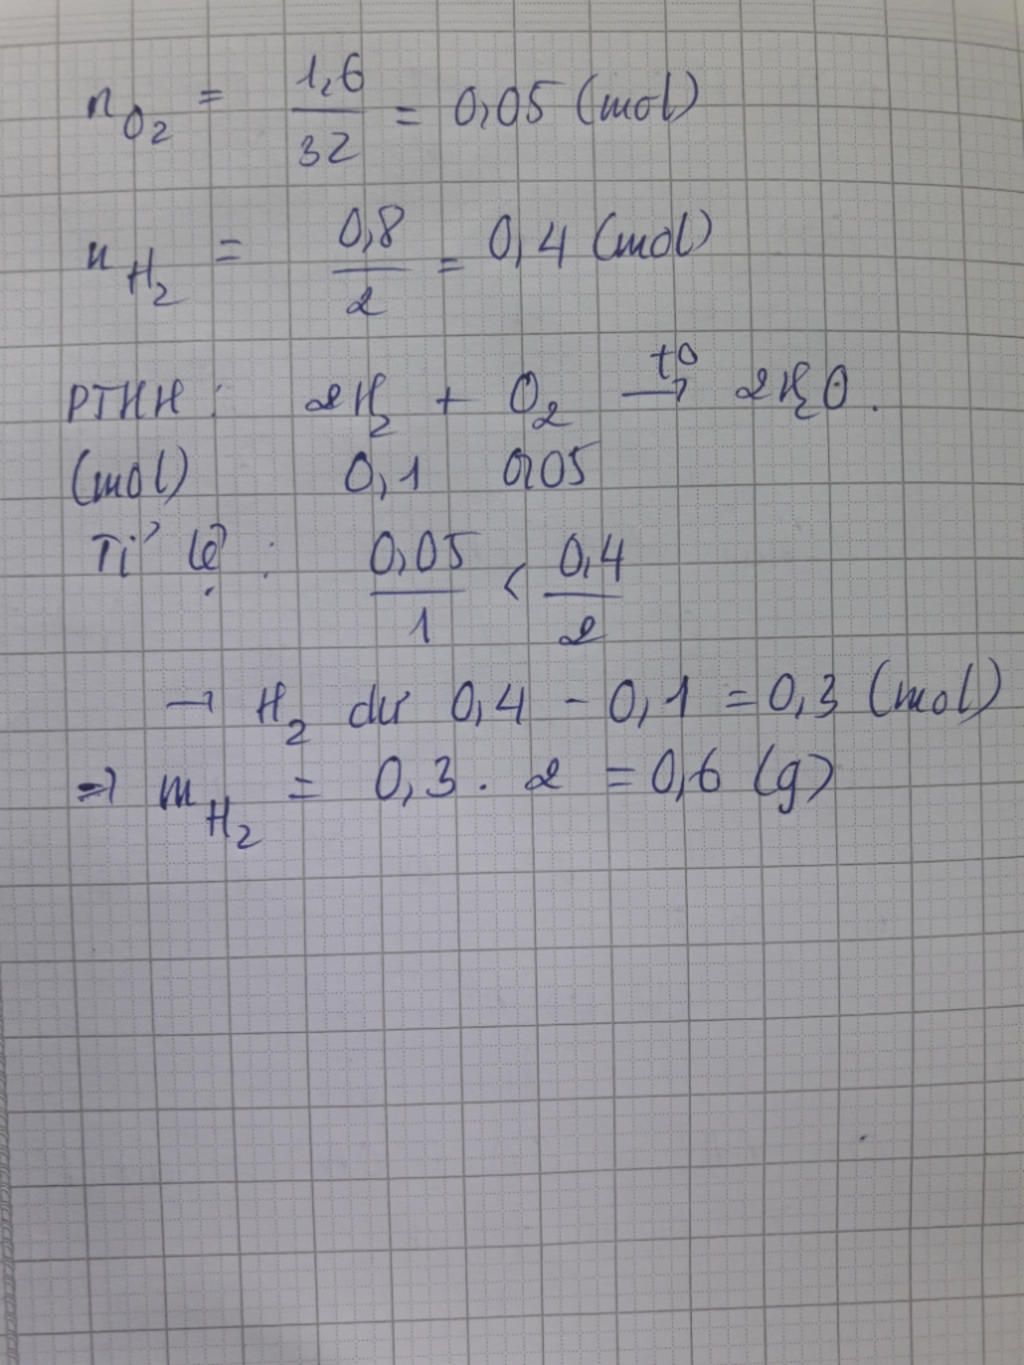 n_O₂ = 1,6/32 = 0,05 (mol)
n_H₂ = 0,8/2 = 0,4 (mol)
PTHH : 2H₂ + O₂ —t⁰→ 2H₂O.
(mol) 0,1 0,05
Tỉ lệ : 0,05/1 < 0,4/2
→ H₂ dư 0,4 - 0,1 = 0,3 (mol)
⇒ m_H₂ = 0,3 . 2 = 0,6 (g)